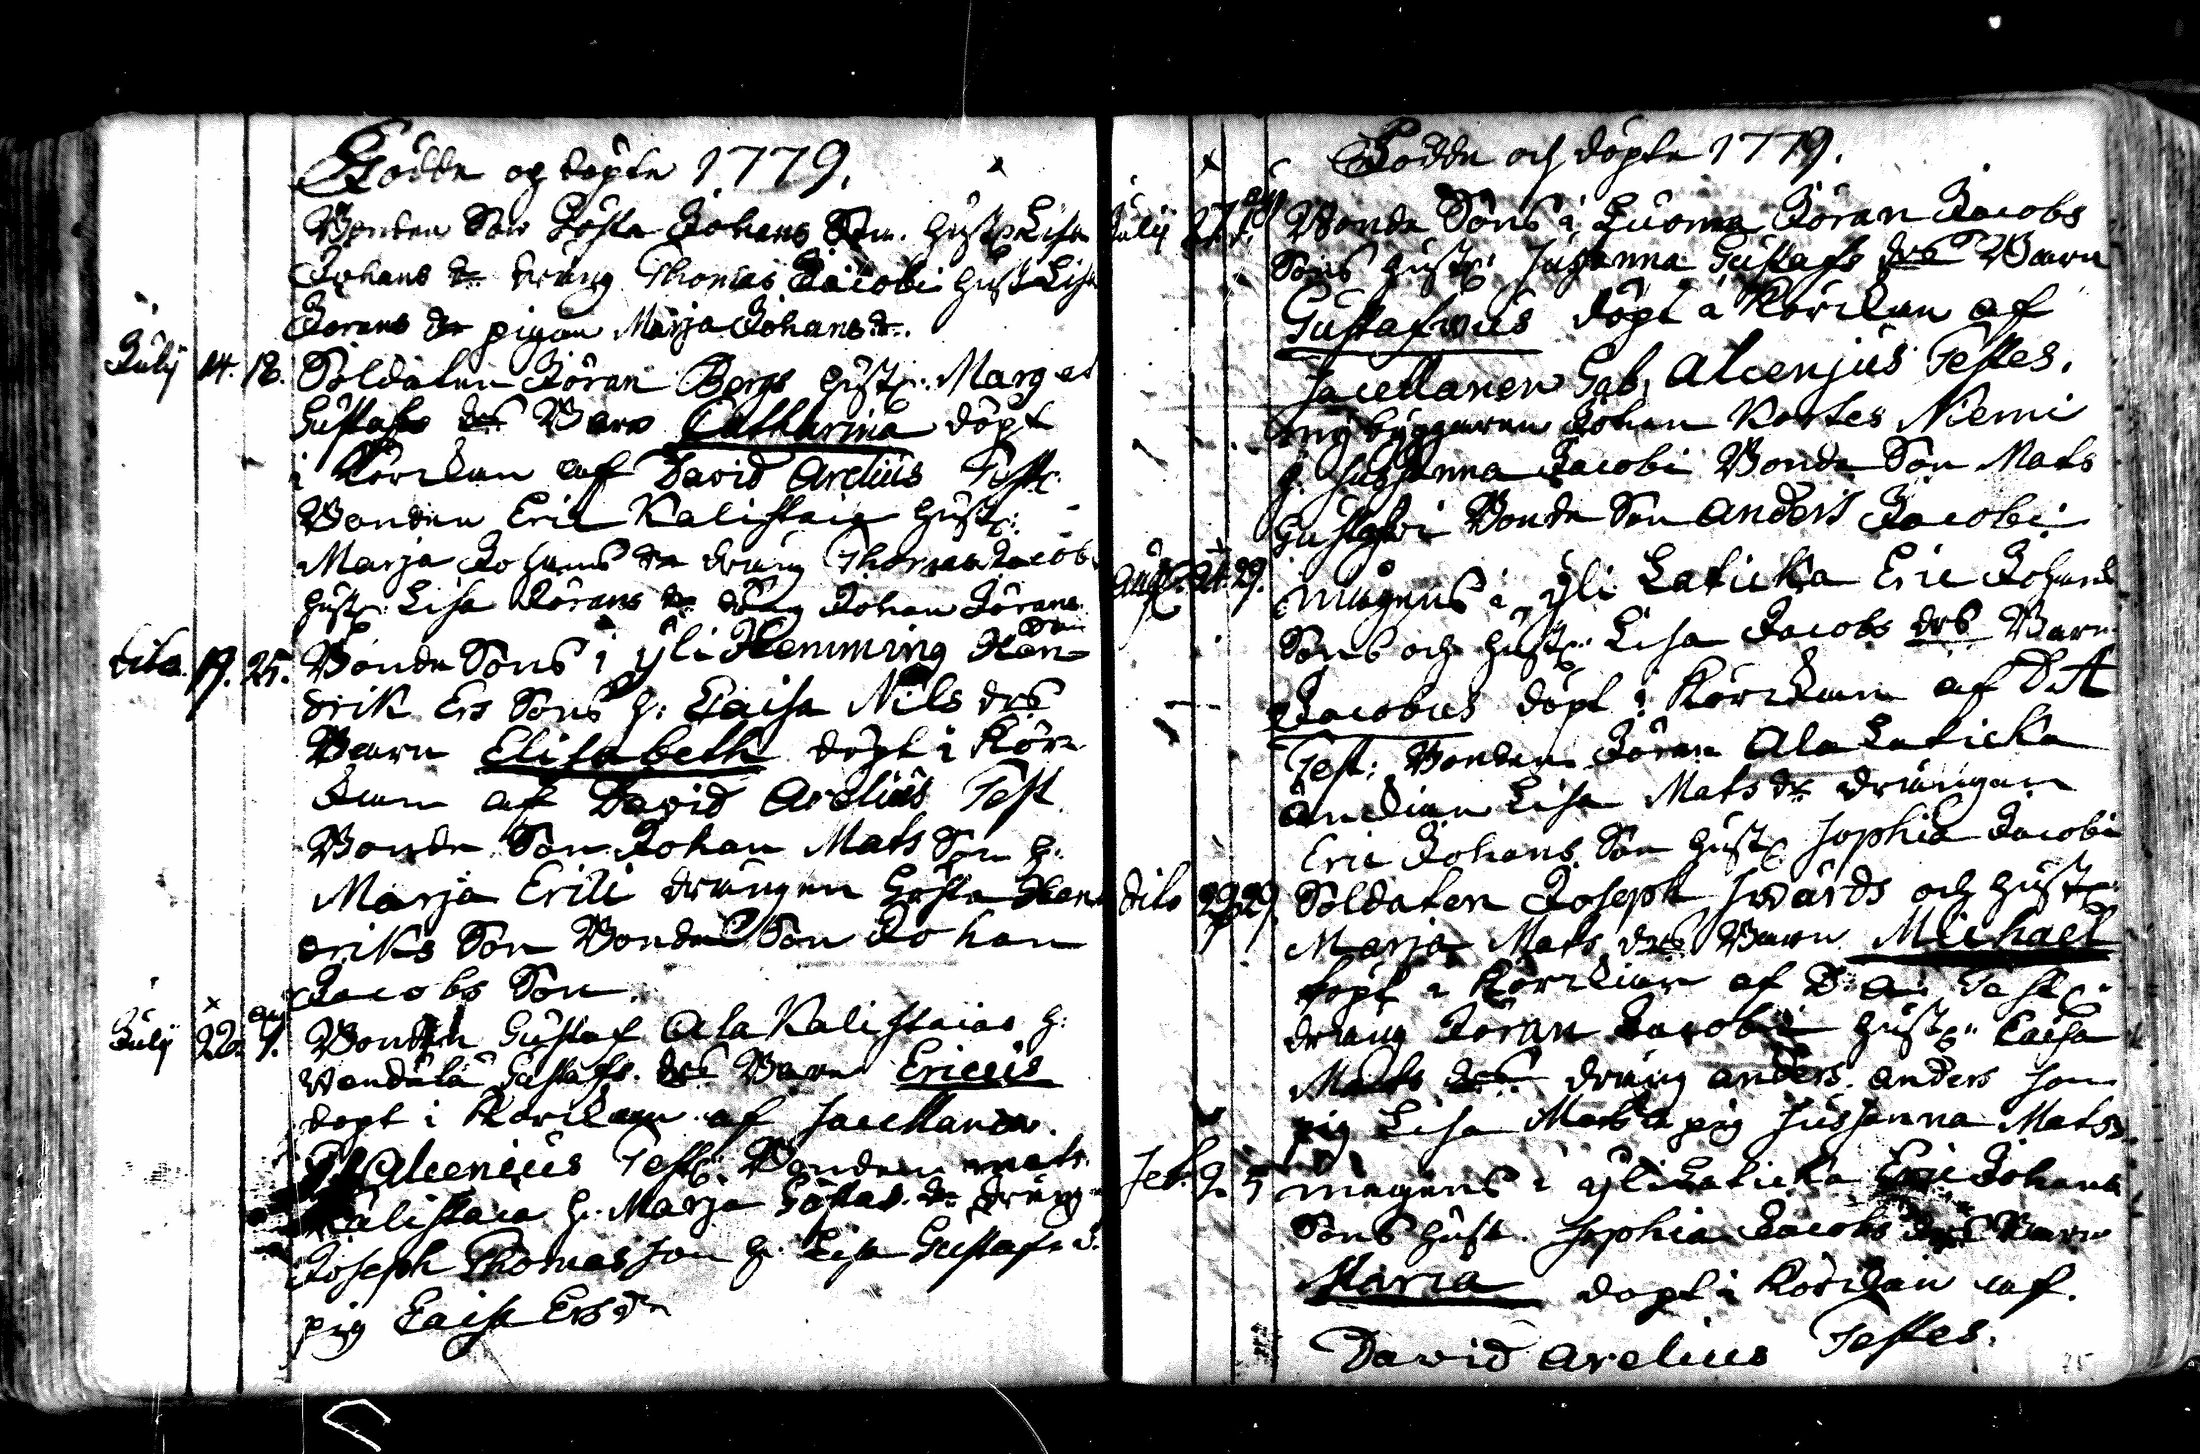 Födde og döpte 1779.
Bonden Son Gösta Johans Son. hust. Lisa
Johans dr dräng Thomas Jacobi hust Lisa
Jörans dr pigan Marja Johans dr.
July 14. 18. Soldaten Jöran Bergs hust: Marget
Gustafs drs Barn Catharina döpt
i Körckan af David Arelius Test:
Bonden Eric Kalistaia hust:
Marja Johans dr dräng Thomas Jacobs
hust: Lisa Jörans dr dräng Johan Jörans
Son
dito. 19. 25. Bonde Sons i Yli Hemming Hen
drik Ers Sons h: Caisa Nils drs
Barn Elisabeth döpt i Kör
kan af David Arelius Test
Bonde Son Johan Mats Son h:
Marja Erici drängen Gösta Hen
driks Son Bonde Son Johan
Jacobs Son.
July 22. aug 1. Bonden Gustaf Ala Kalistaias h:
Vendula Gustafs drs Barn Ericus
döpt i Körckan af Sacellanen.
Alcenius Test: Bonden Mats
Kalistaia h: Marja Göstas dr dräng
Joseph Thomas son h: Lisa Gustafs d.
pig Caisa Ers dr
Födde och döpte 1779.
July 27. aug 1. Bonde Sons i Luoma Jöran Jacobs
Sons hust: Susanna Gustafs drs Barn
Gustafwus döpt i Körckan af
Sacellanen Gab. Alcenius Testes.
nybyggaren Johan Kortes Niemi
h. Susanna Jacobi Bonde Son Mats
Gustafwi Bonde Son Anders Jacobi
Aug: 24. 29. mågens i Yli Laticka Eric Johans
Sons och hust: Lisa Jacobs drs Barn
Jacobus döpt i Körckan af D.A
Test: Bonden Jöran Ala Laticka
enckian Lisa Mats dr drängen
Eric Johans Son hust: Sophia Jacobi
dito 29. 29. Soldaten Joseph Swärds och hust:
Marja Mats drs Barn Michael
döpt i Körckan af D. A. Test:
dräng Jöran Jacobi hust: Caisa
Mats drs dräng anders anders son
pig Lisa Mats dr pig Susanna Mats
Seb. 2. 5 mågens i Yli Laticka Eric Johans
Sons hust. Sophia Jacobs drs Barn
Maria döpt i Körckan af.
David Arelius Testes.